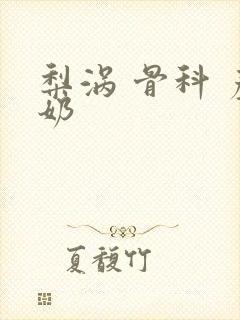 梨涡 骨科
奶
夏馥竹